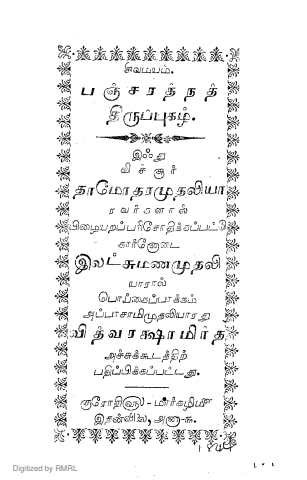 சிவமயம்.
பஞ்சரத்நத்
திருப்புகழ்.
இஃது
விச்சூர்
தாமோதரமுதலியா
ரவர்களால்
பிழையறப்பரிசோதிக்கப்பட்டு
கார்னோடை
இலட்சுமணமுதலி
யாரால்
பொய்கைப்பாக்கம்
அப்பாசாமிமுதலியாரது
வித்வரக்ஷாமிர்த
அச்சுக்கூடத்திற்
பதிப்பிக்கப்பட்டது.
குரோதிளு-மார்கழிமீ
இதன்விலை,
Digitized by RMRL